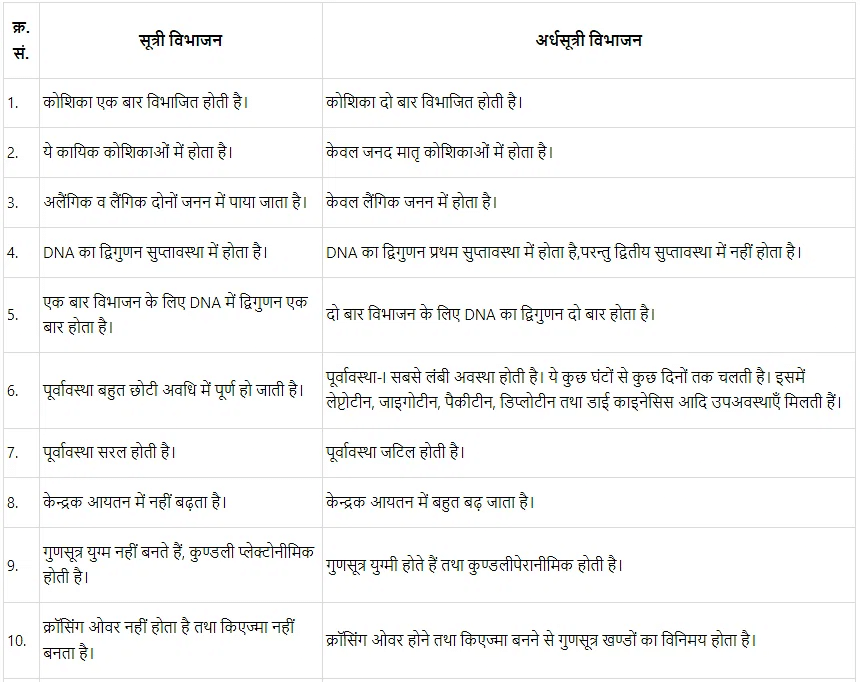 क्र. सं. सूत्री विभाजन अर्धसूत्री विभाजन
1. कोशिका एक बार विभाजित होती है। कोशिका दो बार विभाजित होती है।
2. ये कायिक कोशिकाओं में होता है। केवल जनद मातृ कोशिकाओं में होता है।
3. अलैंगिक व लैंगिक दोनों जनन में पाया जाता है। केवल लैंगिक जनन में होता है।
4. DNA का द्विगुणन सुप्तावस्था में होता है। DNA का द्विगुणन प्रथम सुप्तावस्था में होता है,परन्तु द्वितीय सुप्तावस्था में नहीं होता है।
5. एक बार विभाजन के लिए DNA में द्विगुणन एक
बार होता है।
दो बार विभाजन के लिए DNA का द्विगुणन दो बार होता है।
6. पूर्वावस्था बहुत छोटी अवधि में पूर्ण हो जाती है।
पूर्वावस्था-I सबसे लंबी अवस्था होती है। ये कुछ घंटों से कुछ दिनों तक चलती है। इसमें
लेप्टोटीन, जाइगोटीन, पैकीटीन, डिप्लोटीन तथा डाई काइनेसिस आदि उपअवस्थाएँ मिलती हैं।
7. पूर्वावस्था सरल होती है। पूर्वावस्था जटिल होती है।
8. केन्द्रक आयतन में नहीं बढ़ता है। केन्द्रक आयतन में बहुत बढ़ जाता है।
9. गुणसूत्र युग्म नहीं बनते हैं, कुण्डली प्लेक्टोनीमिक
होती है।
गुणसूत्र युग्मी होते हैं तथा कुण्डलीपेरानीमिक होती है।
10. क्रॉसिंग ओवर नहीं होता है तथा किएज्मा नहीं
बनता है।
क्रॉसिंग ओवर होने तथा किएज्मा बनने से गुणसूत्र खण्डों का विनिमय होता है।